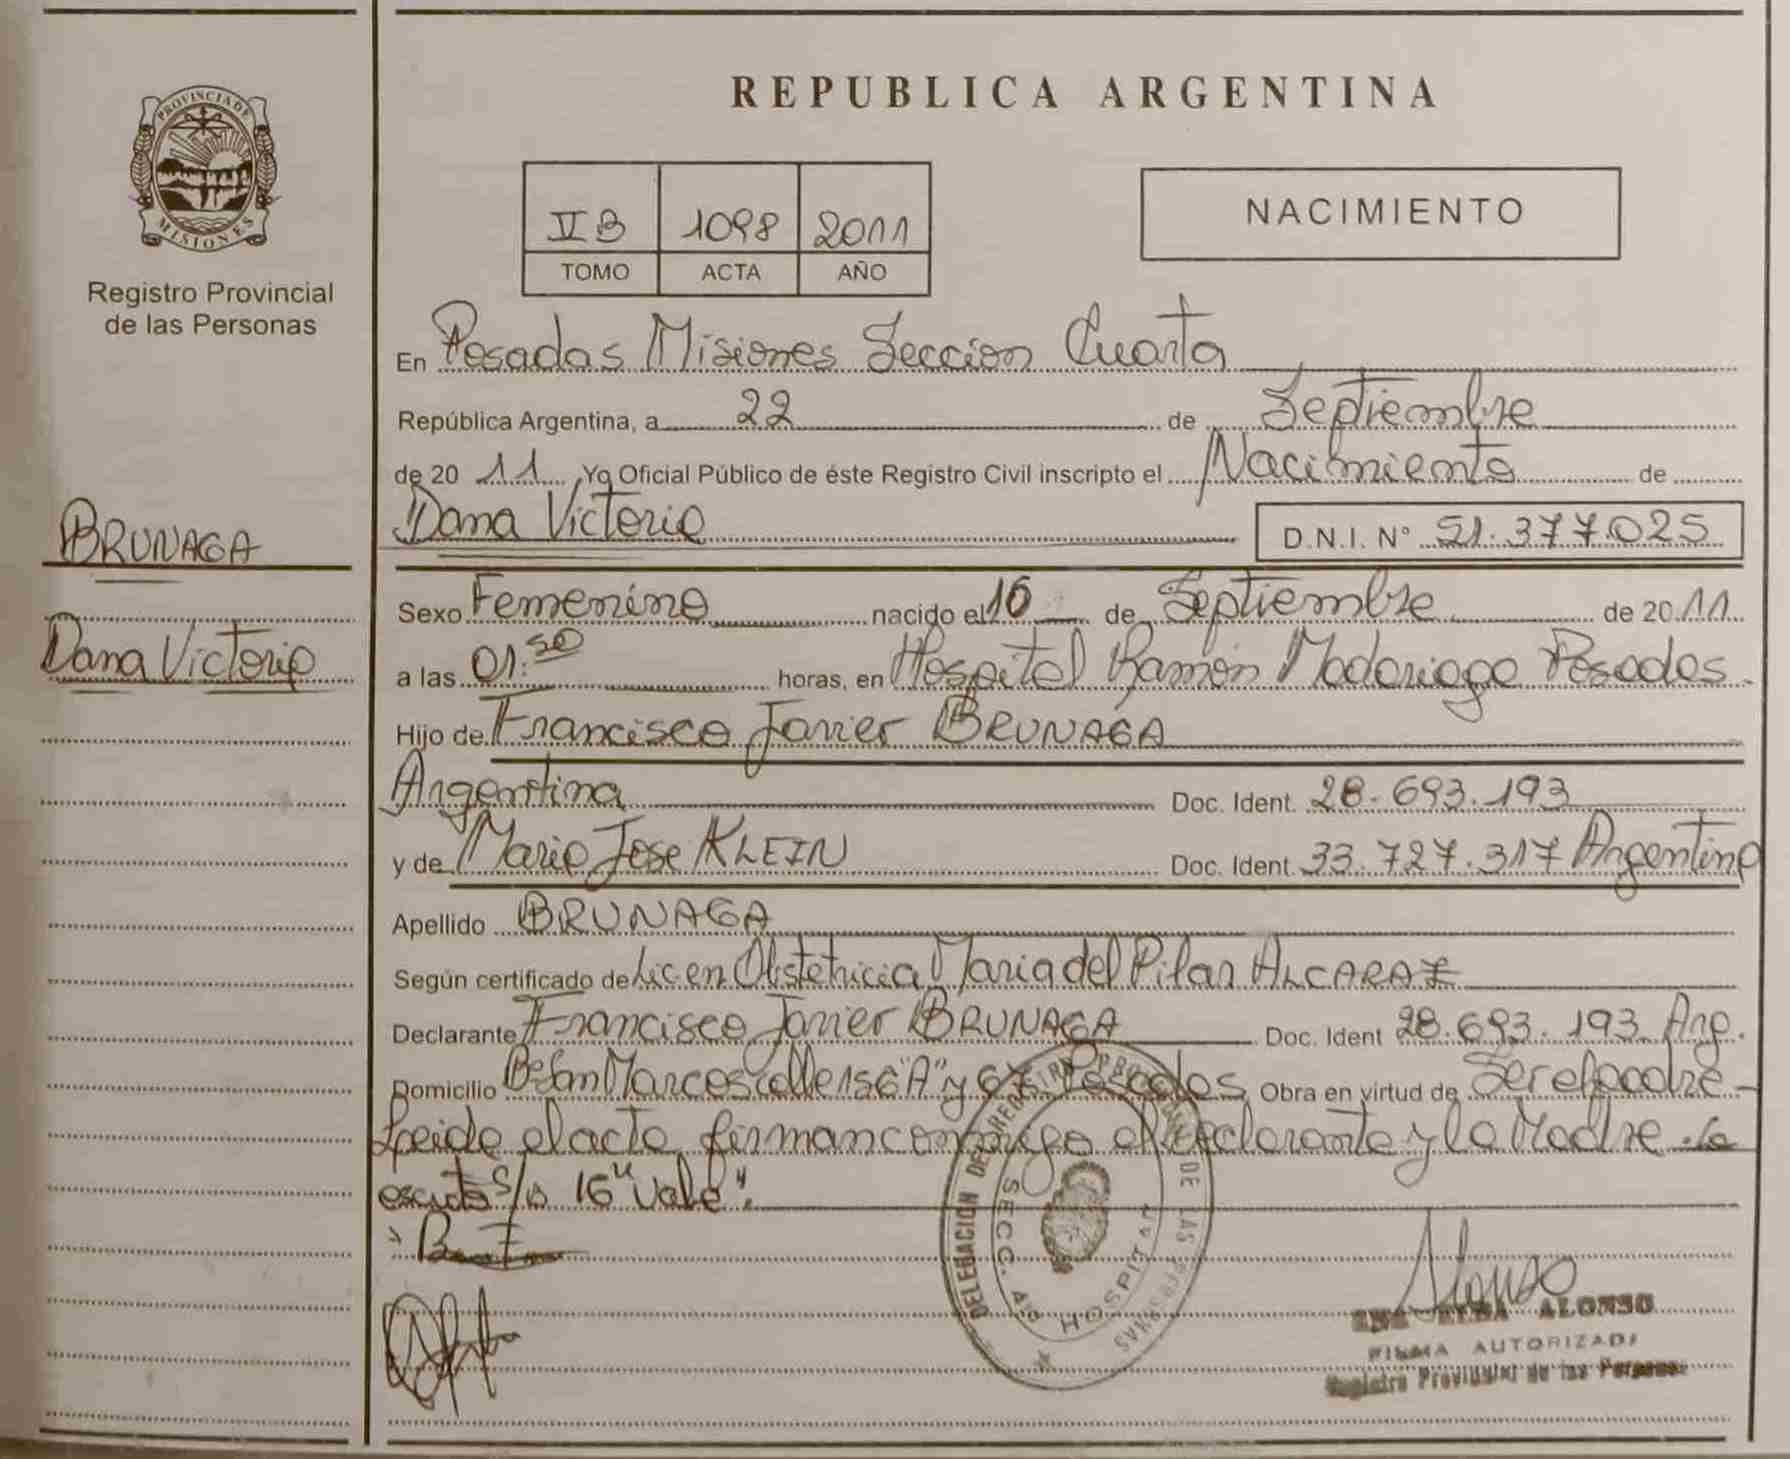 PROVINCIA DE
MISIONES
Registro Provincial
de las Personas
BRUNAGA
Dana Victoria
REPUBLICA ARGENTINA
VB 1098 2011
TOMO ACTA AÑO
NACIMIENTO
En Posadas Misiones Seccion Cuarta
República Argentina, a 22 de Septiembre
de 20 11 Yo Oficial Público de éste Registro Civil inscripto el Nacimiento de
Dana Victoria D.N.I. Nº 51.377.025
Sexo Femenino nacido el 16 de Septiembre de 2011
a las 01:50 horas, en Hospital Ramón Madariaga Posadas
Hijo de Francisco Javier BRUNAGA
Argentina Doc. Ident. 28.693.193
y de Maria Jose KLEIN Doc. Ident. 33.727.317 Argentina
Apellido BRUNAGA
Según certificado de Lic en Obstetricia Maria del Pilar ALCARAZ
Declarante Francisco Javier BRUNAGA Doc. Ident 28.693.193 Arg.
Domicilio Bº San Marcos calle 156 "A" y 67 Posadas Obra en virtud de Ser el padre
Leida el acta firman conmigo el declarante y la Madre. Lo
escrito s/r 16 "Vale".
DELEGACION DEL REGISTRO PROVINCIAL DE LAS PERSONAS
SECC. 4º HOSPITAL
Alonso
ALONSO
FIRMA AUTORIZADA
Registro Provincial de las Personas